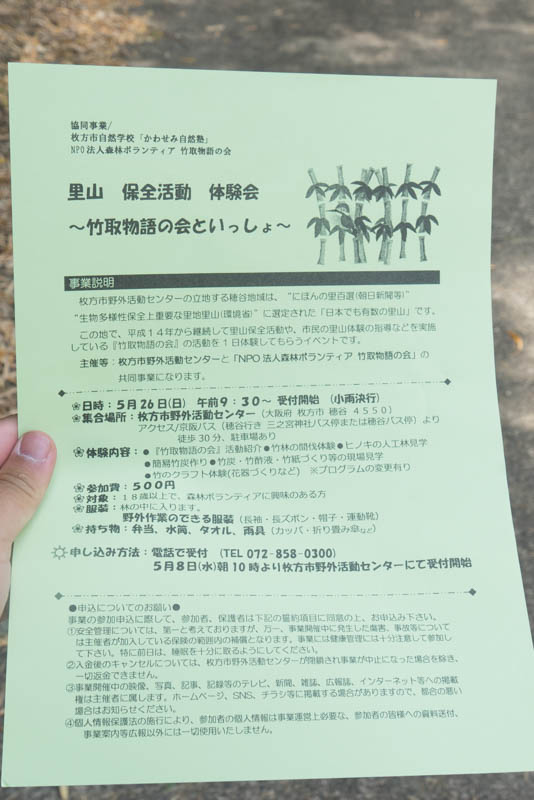 協同事業/
枚方市自然学校「かわせみ自然塾」
NPO法人森林ボランティア 竹取物語の会
里山 保全活動 体験会
～竹取物語の会といっしょ～
事業説明
枚方市野外活動センターの立地する穂谷地域は、“にほんの里百選(朝日新聞等)”
“生物多様性保全上重要な里地里山(環境省)”に選定された「日本でも有数の里山」です。
この地で、平成14年から継続して里山保全活動や、市民の里山体験の指導などを実施
している『竹取物語の会』の活動を1日体験してもらうイベントです。
主催等：枚方市野外活動センターと「NPO法人森林ボランティア 竹取物語の会」の
共同事業になります。
日時：5月26日(日) 午前9：30～ 受付開始 (小雨決行)
集合場所：枚方市野外活動センター（大阪府 枚方市 穂谷 4550）
アクセス/京阪バス（穂谷行き 三之宮神社バス停または穂谷バス停）より
徒歩30分、駐車場あり
体験内容：●『竹取物語の会』活動紹介●竹林の間伐体験●ヒノキの人工林見学
●簡易竹炭作り●竹炭・竹酢液・竹紙づくり等の現場見学
●竹のクラフト体験(花器づくりなど) ※プログラムの変更有り
参加費：500円
対象：18歳以上で、森林ボランティアに興味のある方
服装：林の中に入ります。
野外作業のできる服装（長袖・長ズボン・帽子・運動靴）
持ち物：弁当、水筒、タオル、雨具（カッパ・折り畳み傘など）
申し込み方法：電話で受付 （TEL 072-858-0300）
5月8日(水)朝10時より枚方市野外活動センターにて受付開始
●申込についてのお願い●
事業の参加申込に際して、参加者、保護者は下記の誓約項目に同意の上、お申込み下さい。
①安全管理については、第一と考えておりますが、万一、事業開催中に発生した傷害、事故等について
は主催者が加入している保険の範囲内の補償となります。事業には健康管理には十分注意して参加し
て下さい。特に前日は、睡眠を十分に取るようにしてください。
②入金後のキャンセルについては、枚方市野外活動センターが閉鎖され事業が中止になった場合を除き、
一切返金できません。
③事業開催中の映像、写真、記事、記録等のテレビ、新聞、雑誌、広報誌、インターネット等への掲載
権は主催者に属します。ホームページ、SNS、チラシ等に掲載する場合がありますので、都合の悪い
場合はお知らせください。
④個人情報保護法の施行により、参加者の個人情報は事業運営上必要な、参加者の皆様への資料送付、
事業案内等広報以外には一切使用いたしません。